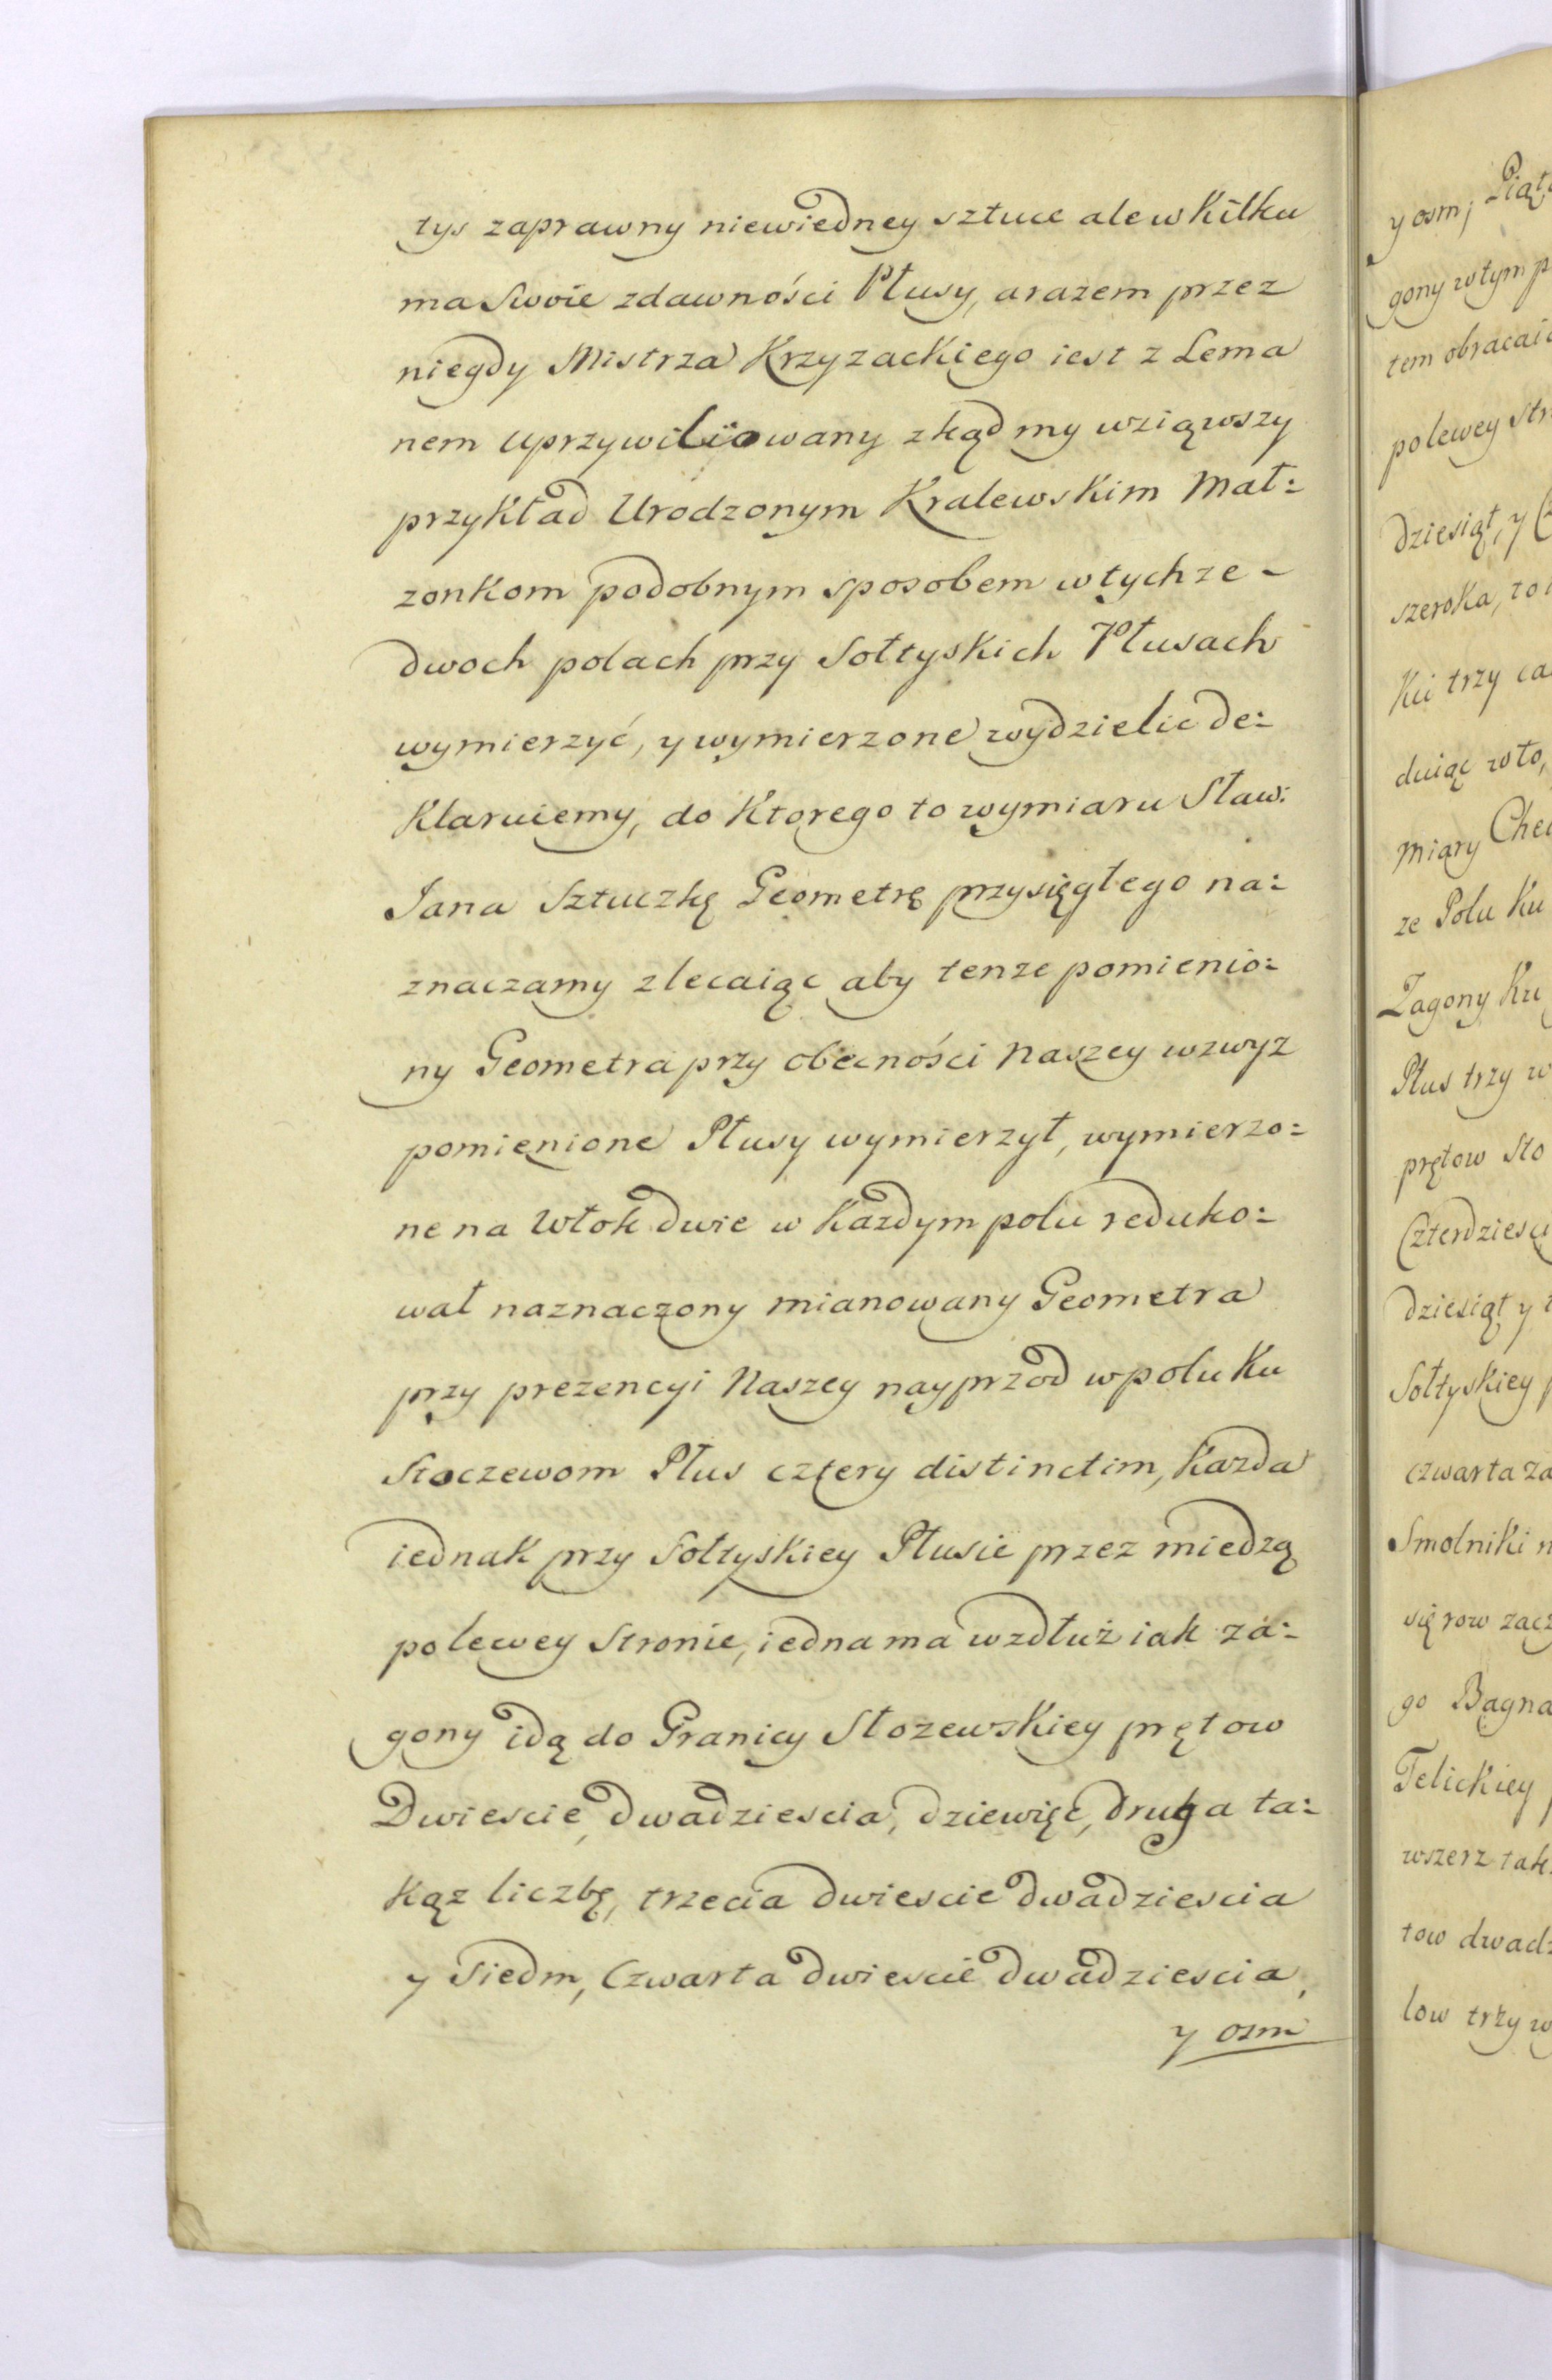 tys zaprawny niewiedney sztuce ale w Kilku
ma Swoie zdawności Płusy, arazem przez
niegdy Mistrza Krzyzackiego iest z Lema
nem uprzywiliiowany zkąd my wziąwszy
przykład Urodzonym Kralewskim Mał:
zonkom podobnym sposobem wtychze -
dwoch polach przy Sołtyskich Płusach
wymierzyć, y wymierzone wydzielic de:
Klaruiemy, do Ktorego to wymiaru Sław:
Jana Sztuczkę Geometrę przysięgłego na:
znaczamy zlecaiąc aby tenze pomienio:
ny Geometra przy obecności Naszey wzwyz
pomienione Płusy wymierzył, wymierzo:
ne na Włok dwie w Kazdym polu reduko:
wał naznaczony mianowany Geometra
przy prezencyi Naszey nayprzod wpolu Ku
Stoczewom Płus cztery distinctim, Kazda
iednak przy Sołtyskiey Płusie przez miedzą
polewey Stronie, iedna ma wzdłuż iak za:
gony idą do Granicy Stozewskiey prętow
Dwiescie, dwadziescia, dziewięc, druga ta:
Kąz liczbę, trzecia dwiescie dwadziescia
y Siedm, Czwarta dwiescie dwadziescia,
y osm
y osm; Piąt
gony wtym p
tem obracai
polewey Str
dziesiąt, y
szeroka, to
Ku trzy ca
duiąc wło,
miary Chec
ze Polu Ku
Zagony Ku
Płus trzy w
prętow Sto
Czterdziesci
dziesiąt y
Sołtyskiey p
czwarta za
Smolniki n
się row zacz
go Bagna
Telickiey p
wszerz tak
tow dwadz
low trzy w